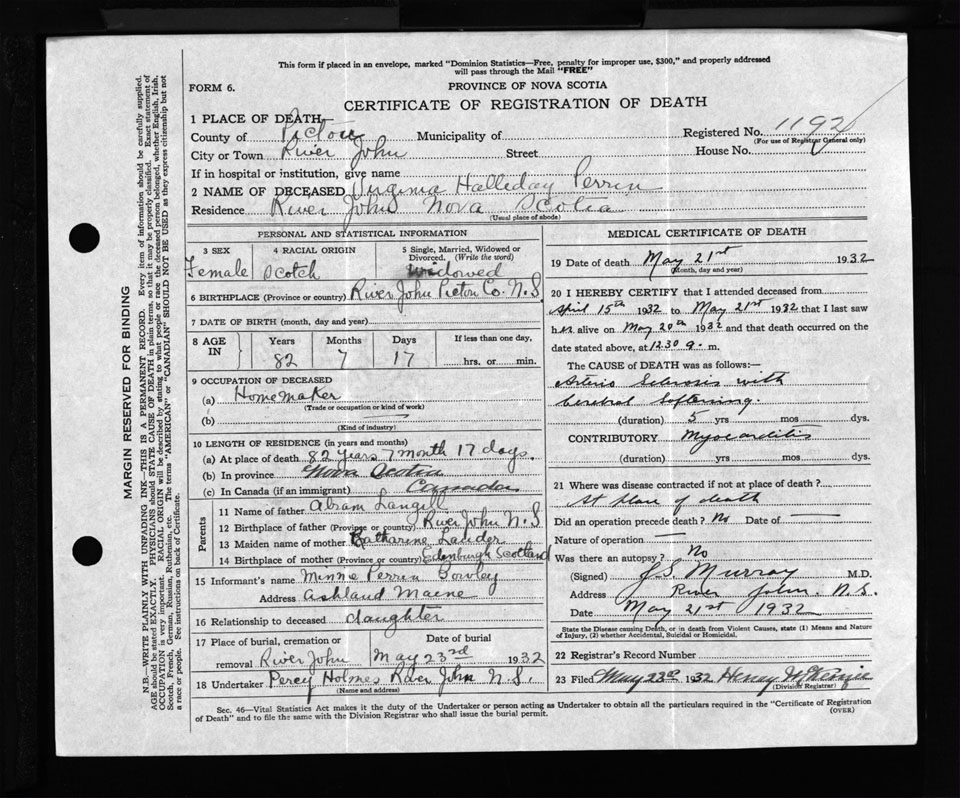 This form if placed in an envelope, marked "Dominion Statistics—Free, penalty for improper use, $300," and properly addressed
will pass through the Mail "FREE"
FORM 6.
PROVINCE OF NOVA SCOTIA
CERTIFICATE OF REGISTRATION OF DEATH
1 PLACE OF DEATH
County of Pictou Municipality of Registered No. 1192
(For use of Registrar General only)
City or Town River John Street House No.
If in hospital or institution, give name
2 NAME OF DECEASED Virginia Halliday Perrin
Residence River John Nova Scotia
(Usual place of abode)
PERSONAL AND STATISTICAL INFORMATION
3 SEX 4 RACIAL ORIGIN 5 Single, Married, Widowed or
Divorced. (Write the word)
Female Scotch Widowed
6 BIRTHPLACE (Province or country) River John Pictou Co. N.S
7 DATE OF BIRTH (month, day and year)
8 AGE IN Years Months Days If less than one day,
82 7 17 hrs. or min.
9 OCCUPATION OF DECEASED
(a) Homemaker
(Trade or occupation or kind of work)
(b)
(Kind of industry)
10 LENGTH OF RESIDENCE (in years and months)
(a) At place of death 82 years 7 month 17 days.
(b) In province Nova Scotia
(c) In Canada (if an immigrant) Canada
Parents
11 Name of father Abram Langill
12 Birthplace of father (Province or country) River John N.S
13 Maiden name of mother Katharine Lauder
14 Birthplace of mother (Province or country) Edenburgh Scotland
15 Informant's name Minnie Perrin Bowley
Address Ashland Maine
16 Relationship to deceased daughter
17 Place of burial, cremation or Date of burial
removal River John May 23rd 1932
18 Undertaker Percy Holmes River John N.S.
(Name and address)
MEDICAL CERTIFICATE OF DEATH
19 Date of death May 21st 1932
(Month, day and year)
20 I HEREBY CERTIFY that I attended deceased from
April 15th 1932 to May 21st 1932 that I last saw
her alive on May 20th 1932 and that death occurred on the
date stated above, at 12.30 a. m.
The CAUSE of DEATH was as follows:—
Arterio Sclerosis with
Cerebral Softening.
(duration) 5 yrs mos dys.
CONTRIBUTORY Myocarditis
(duration) yrs. mos dys.
21 Where was disease contracted if not at place of death?
At place of death
Did an operation precede death? No Date of —
Nature of operation —
Was there an autopsy? No
(Signed) J.S. Murray M.D.
Address River John. N.S.
Date May 21st 1932
State the Disease causing Death, or in death from Violent Causes, state (1) Means and Nature
of Injury, (2) whether Accidental, Suicidal or Homicidal.
22 Registrar's Record Number
23 Filed May 23rd 1932 Henry McKenzie
(Division Registrar)
Sec. 46—Vital Statistics Act makes it the duty of the Undertaker or person acting as Undertaker to obtain all the particulars required in the "Certificate of Registration
of Death" and to file the same with the Division Registrar who shall issue the burial permit. (OVER)
MARGIN RESERVED FOR BINDING
N.B. WRITE PLAINLY WITH UNFADING INK—THIS IS A PERMANENT RECORD. Every item of information should be carefully supplied.
AGE should be stated EXACTLY. PHYSICIANS should STATE CAUSE OF DEATH in plain terms, so that it may be properly classified. Exact statement of
OCCUPATION is very important. RACIAL ORIGIN will be described by stating to what people or race the deceased person belonged, whether English, Irish,
Scotch, French, German, Russian, Ruthenian, etc. The terms "AMERICAN" or "CANADIAN" SHOULD NOT BE USED as they express citizenship but not
a race or people. See instructions on back of Certificate.